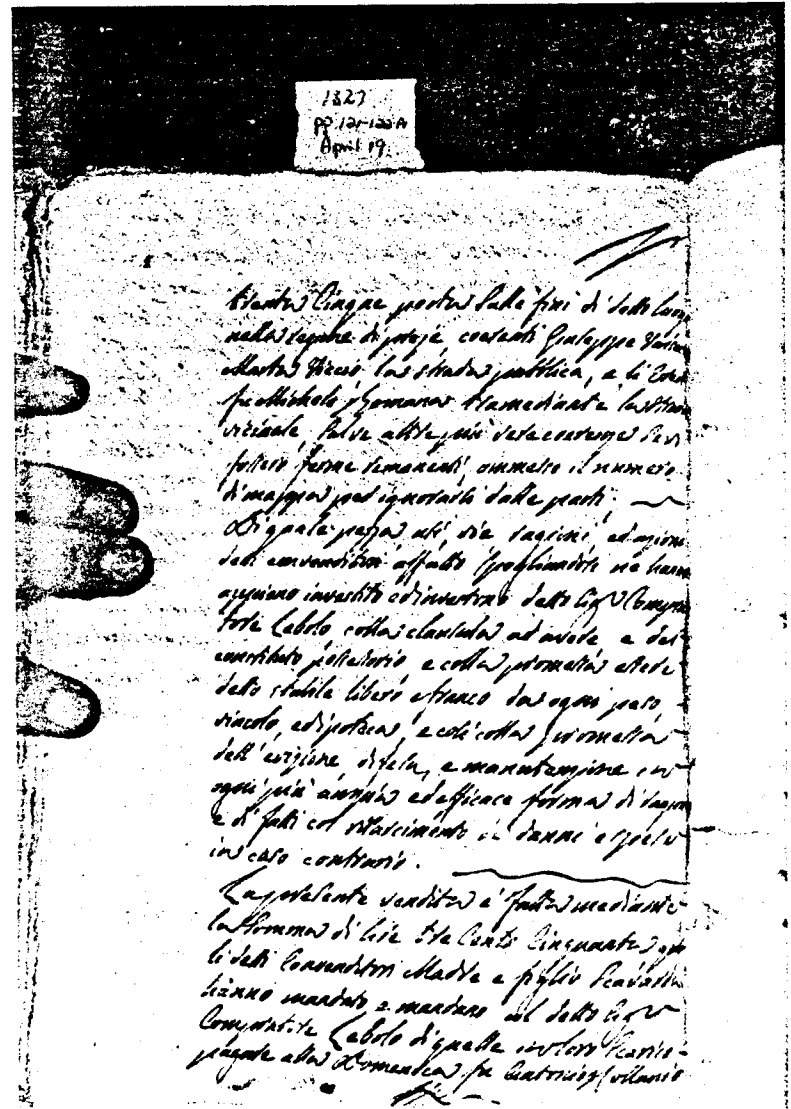 1827
pp 121-122A
April 19
trenta Cinque posta sulle fini di detto luogo
nella regione di coerenti Giuseppe
Marta la strada pubblica, e li
fu Michele tramediante la
vicinale, salve altre più vere coerenze se vi
fossero ferme rimanenti, ommesso il numero
di mappa per ignorarsi dalle parti,
Di quale pezza usi vie ragioni, ed azioni
detti convenditori affatto spogliandosi ne hanno
appieno investito ed investono detto Sig.r Compra
tore Cabolo colla clausula ad avere e del
constituto possessorio e colla promessa essere
detto stabile libero e franco da ogni peso
vincolo, ed ipoteca, e così colla promessa
dell'evizione difesa, e manutenzione in
ogni più ampia ed efficace forma di ragione
e di fatti col rifacimento de danni e spese
in caso contrario.
La presente vendita è fatta mediante
la somma di lire tre Cento Cinquanta
li detti Convenditori Madre e figlio
hanno mandato e mandano al detto Sig.r
Compratore Cabolo di quelle in loro scarico
pagare alla Domenica fu Antonio